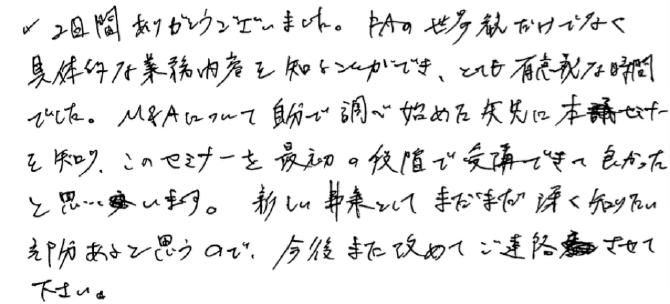 ✓ 2日間ありがとうございました。FAの世界観だけでなく
具体的な業務内容を知ることができ、とても有意義な時間
でした。M&Aについて自分で調べ始めた矢先に本セミナー
を知り、このセミナーを最初の段階で受講できて良かった
と思います。新しい としてまだまだ深く知りたい
部分あると思うので、今後また改めてご連絡させて
下さい。